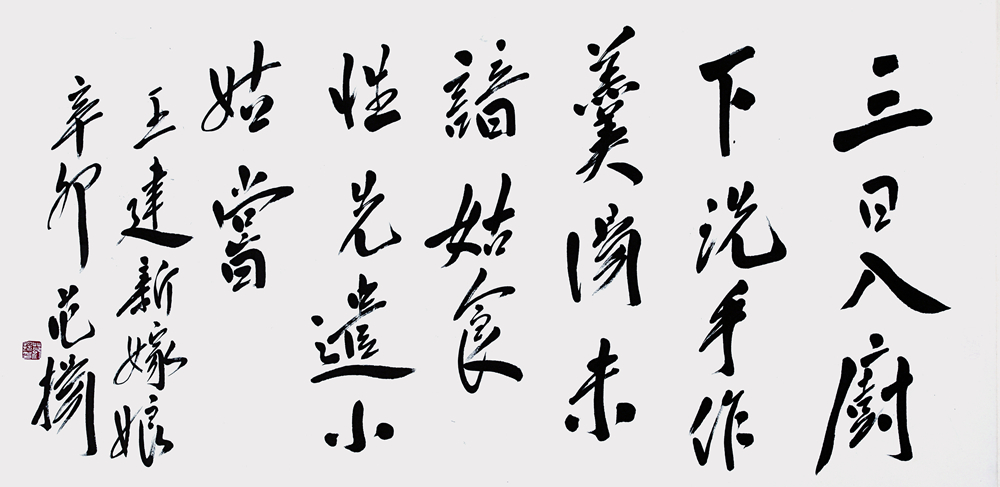 三日入廚
下洗手作
羹湯未
諳姑食
性先遣小
姑嘗
王建新嫁娘
辛卯 范